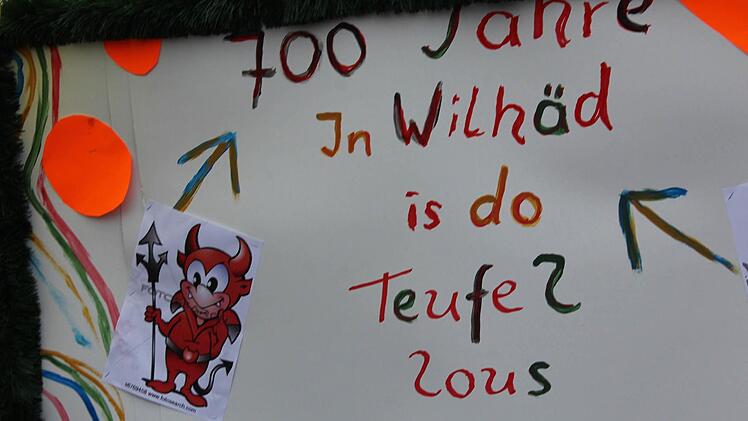 700 Jahre
In Wilhäd
is do
Teufel
lous
www.fotosearch.com